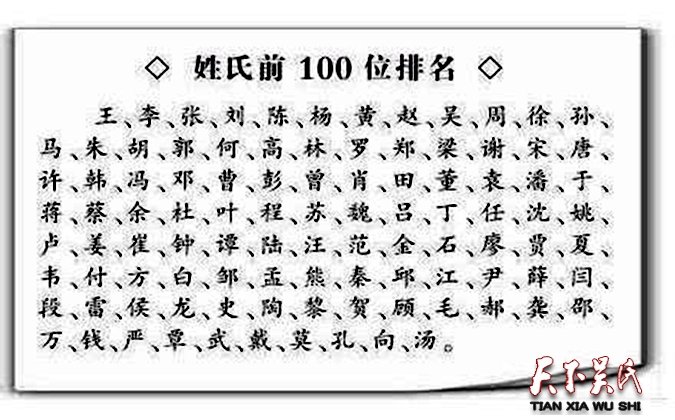 ◇ 姓氏前 100 位排名 ◇
王、李、张、刘、陈、杨、黄、赵、吴、周、徐、孙、
马、朱、胡、郭、何、高、林、罗、郑、梁、谢、宋、唐、
许、韩、冯、邓、曹、彭、曾、肖、田、董、袁、潘、于、
蒋、蔡、余、杜、叶、程、苏、魏、吕、丁、任、沈、姚、
卢、姜、崔、钟、谭、陆、汪、范、金、石、廖、贾、夏、
韦、付、方、白、邹、孟、熊、秦、邱、江、尹、薛、闫、
段、雷、侯、龙、史、陶、黎、贺、顾、毛、郝、龚、邵、
万、钱、严、覃、武、戴、莫、孔、向、汤。
天下吴氏
TIAN XIA WU SHI